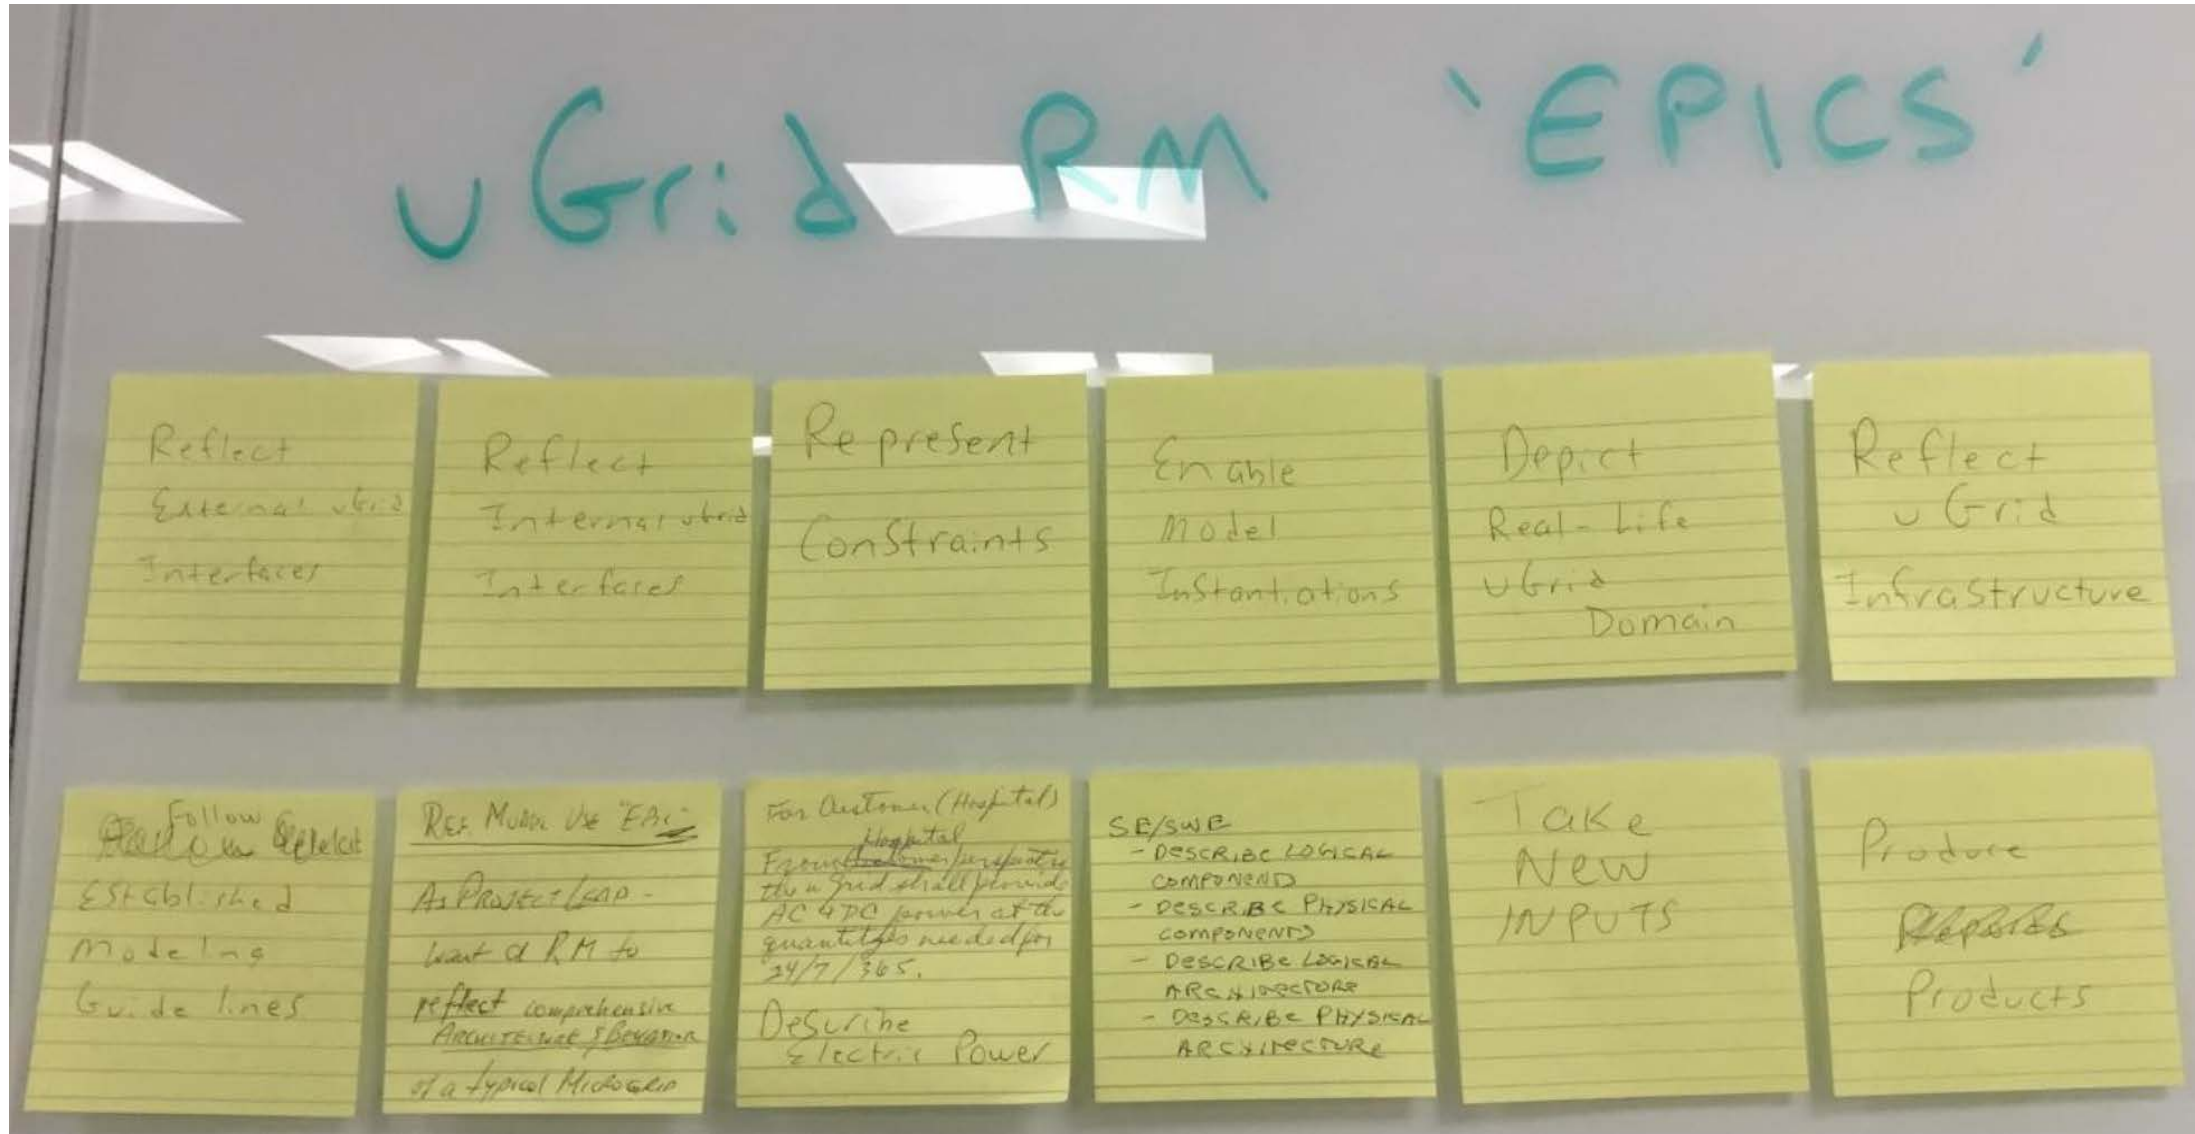 uGrid RM 'EPICS'
Reflect
External uGrid
Interfaces
Reflect
Internal uGrid
Interfaces
Represent
Constraints
Enable
Model
Instantiations
Depict
Real-Life
uGrid
Domain
Reflect
uGrid
Infrastructure
Follow
Established
Modeling
Guidelines
REF MODEL USE "EPIC"
AS PROJECT LEAD -
want a RM to
reflect comprehensive
ARCHITECTURE & BEHAVIOR
of a typical MICROGRID
For Customer (Hospital)
Hospital
From perspective
the u grid shall provide
AC & DC power at the
quantities needed for
24/7/365.
Describe
Electric Power
SE/SWE
- DESCRIBE LOGICAL
COMPONENTS
- DESCRIBE PHYSICAL
COMPONENTS
- DESCRIBE LOGICAL
ARCHITECTURE
- DESCRIBE PHYSICAL
ARCHITECTURE
Take
New
INPUTS
Produce
Reports
Products